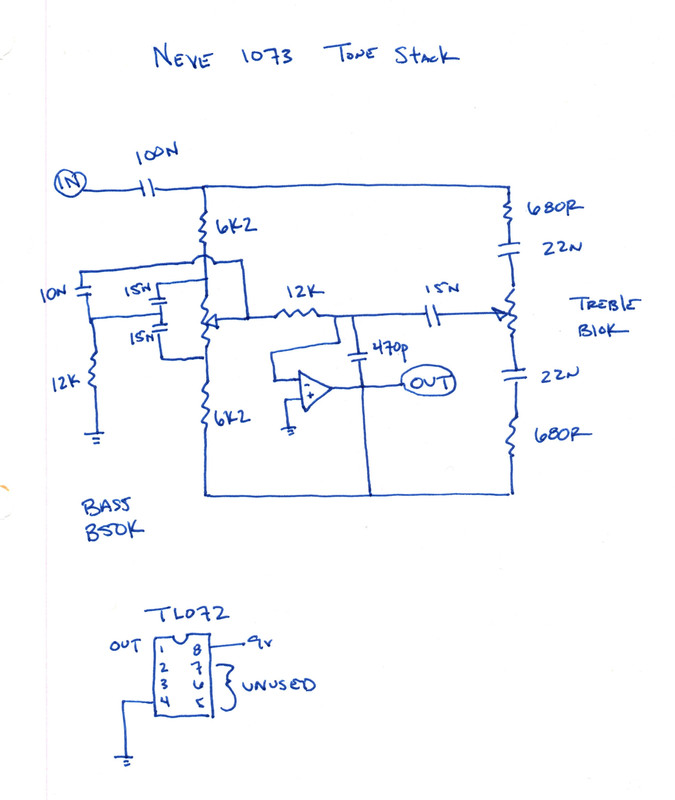 NEVE 1073 TONE STACK
IN
100N
6K2
680R
22N
10N
15N
15N
12K
15N
TREBLE
B10K
470p
12K
- +
OUT
22N
6K2
680R
BASS
B50K
TL072
OUT 1 8 9V
2 7
3 6 UNUSED
4 5